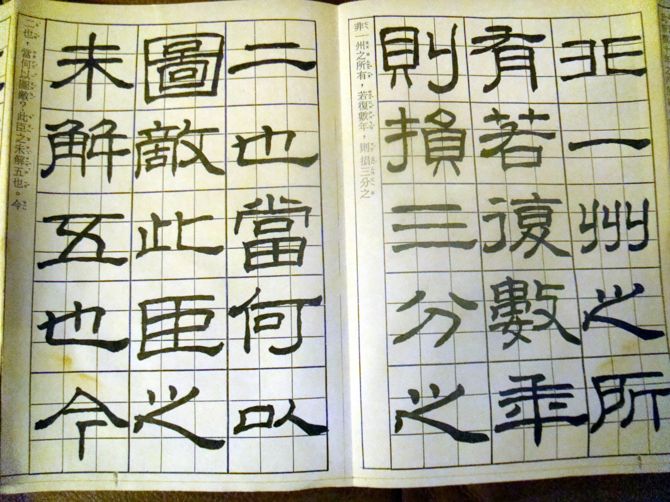 非一州之所
有若復數年
則損三分之
非一州之所有，若復數年，則損三分之
二也當何以
圖敵此臣之
未解五也今
二也，當何以圖敵？此臣之未解五也。今